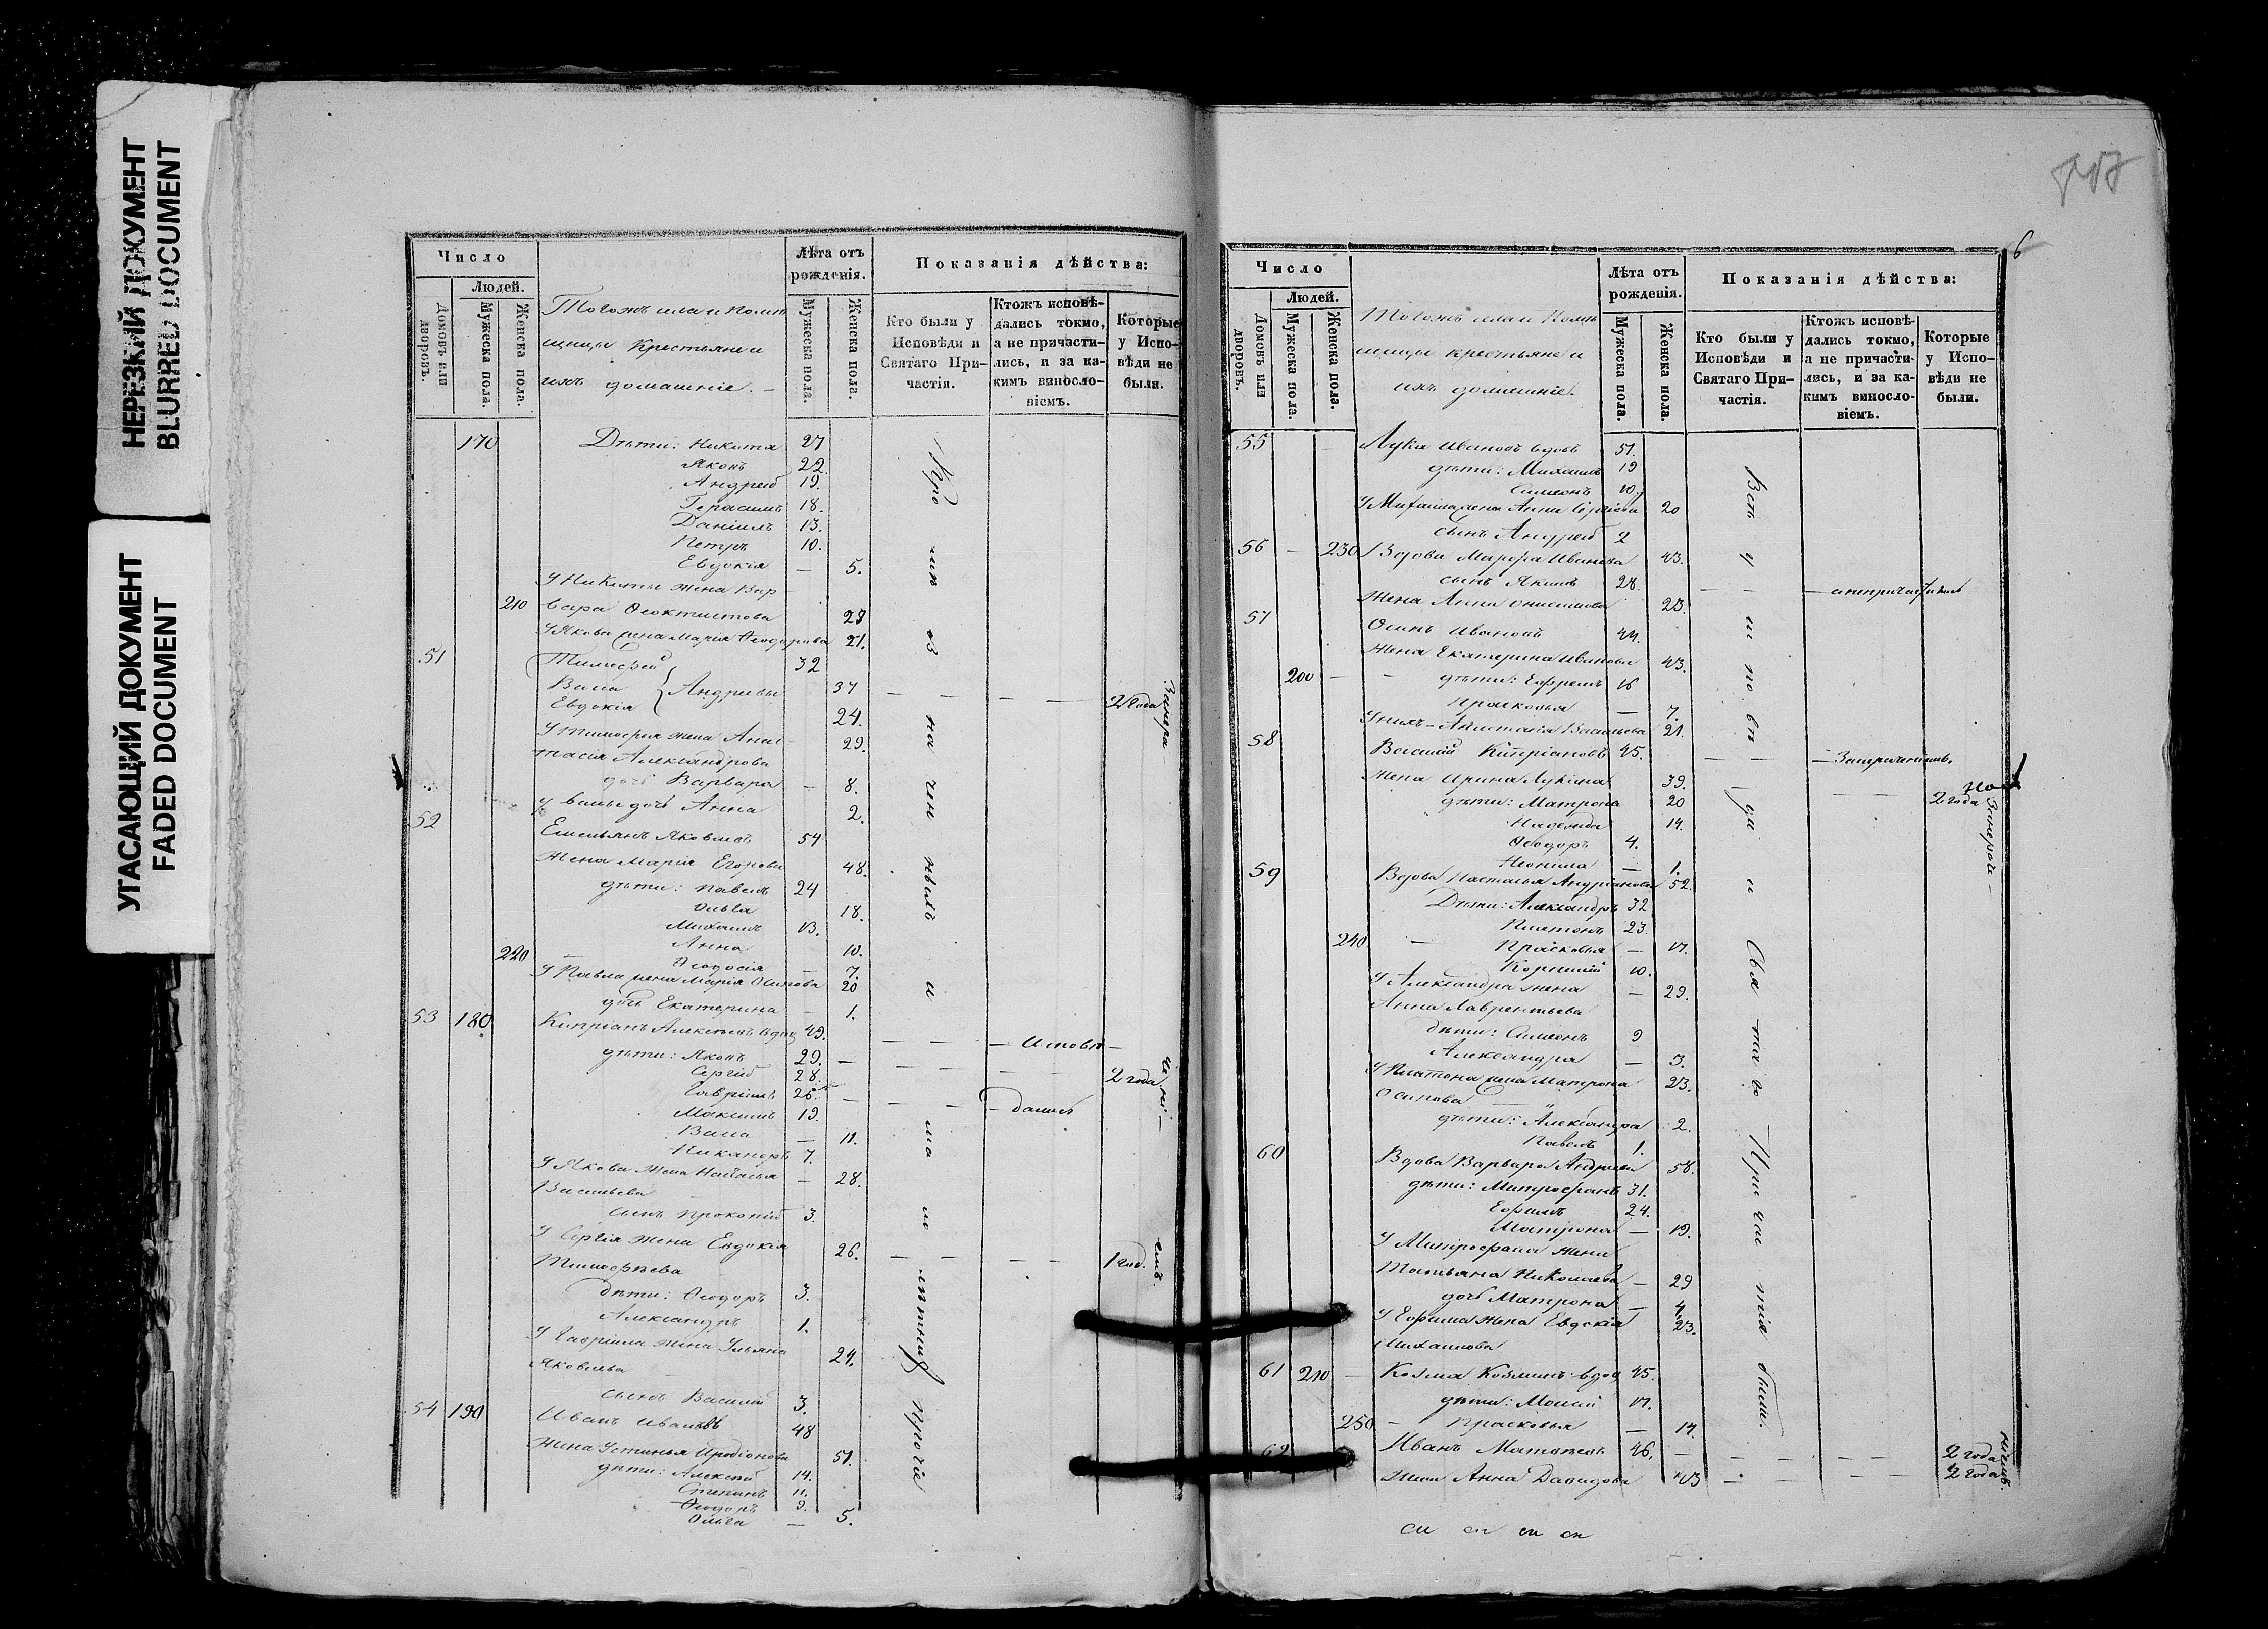 НЕРЕЗКИЙ ДОКУМЕНТ
BLURRED DOCUMENT
УГАСАЮЩИЙ ДОКУМЕНТ
FADED DOCUMENT
Число
Людей.
Домовъ или дворовъ.
Мужеска пола.
Женска пола.
крестьяне и
ихъ домашніе. –
Лѣта отъ рожденія.
Мужеска пола.
Женска пола.
Показанія дѣйства:
Кто были у Исповѣди и Святаго При-частія.
Ктожъ исповѣ-дались токмо, а не причасти-лись, и за ка-кимъ винослo-віемъ.
Которые у Испо-вѣди не были.
170 Дѣти: Никита 27
Яковъ 22.
Андрей 19.
Герасимъ 18.
Даніилъ 13.
Петръ 10.
Евдокія – 5.
У Никиты жена Вар-
210 вара Феоктистова 28
У Якова жена Марія Феодорова 21.
51 Тимофей 32
Васса } Андреевы 37 2 года
Евдокія 24.
У Тимофея жена Анас- 29.
тасія Александрова
дочь Варвара – 8.
у Вассы дочь Анна 2.
52 Емельянъ Яковлевъ 54
Жена Марія Егорова 48.
дѣти: Павелъ 24
Ольга 18.
Михаилъ 13.
Анна 10.
220 Феодосія – 7.
У Павла жена Марія Осипова 20
дочь Екатерина – 1.
53 180 Кипріанъ Алексѣевъ вдов 49. – Исповѣ –
дѣти: Яковъ 29. –
Сергій 28. 2 года
Гавріилъ 26. – дался
Максимъ 19.
Васса – 11.
Никаноръ 7.
У Якова жена Наталья – 28.
Васильева
сынъ Прокопій 3.
У Сергія жена Евдокія 26. 1 год.
Тимофѣева
дѣти: Феодоръ 3.
Александръ 1.
У Гавріила жена Ульяна 24.
Яковлева
сынъ Василій 3.
54 190 Иванъ Ивановъ 48
Жена Устинья Иродіонова 51.
дѣти: Алексѣй 14.
Степанъ 11.
Феодоръ 9.
Ольга – 5.
6
Число
Людей.
Домовъ или дворовъ.
Мужеска пола.
Женска пола.
крестьяне и
ихъ домашніе.
Лѣта отъ рожденія.
Мужеска пола.
Женска пола.
Показанія дѣйства:
Кто были у Исповѣди и Святаго При-частія.
Ктожъ исповѣ-дались токмо, а не причасти-лись, и за ка-кимъ винослo-віемъ.
Которые у Испо-вѣди не были.
55 Лука Ивановъ вдовъ 51.
дѣти: Михаилъ 19
Симеонъ 10.
У Михаила жена Анна Сергіева 20
сынъ Андрей 2
56 – 230 Вдова Марфа Иванова 43.
сынъ Якимъ 28.
Жена Анна Онисимова 23.
57 Осипъ Ивановъ 44.
Жена Екатерина Иванова 43.
200 – – дѣти: Ефремъ 16
Прасковья – 7.
У нихъ – Анастасія Васильева 21.
58 Василій Кипріановъ 45.
Жена Ирина Лукина 39. 2 года
дѣти: Матрона 20
Надежда 14.
Феодоръ 4.
Неонила – 1.
59 Вдова Настасья Андріанова 52.
Дѣти: Александръ 32
Платонъ 23.
240 – Прасковья – 17.
Корнилій 10.
У Александра жена – 29.
Анна Лаврентьева
дѣти: Симеонъ 9
Александра – 3.
У Платона жена Матрона 23.
Осипова
дѣти: Александра 2.
Павелъ 1.
60 Вдова Варвара Андреева 58.
дѣти: Митрофанъ 31.
Ефимъ 24.
Матрона – 19.
У Митрофана жена
Татьяна Николаева – 29
дочь Матрона – 4.
У Ефима жена Евдокія 23.
Михаилова
61 210 – Козма Козминъ вдов 45.
дѣти: Моисей 17.
250 – Прасковья – 14.
62 Иванъ Матвѣевъ 46. – 2 года
Жена Анна Давидова 43 2 года
Всѣ у исповѣди и Святаго Причастія были.